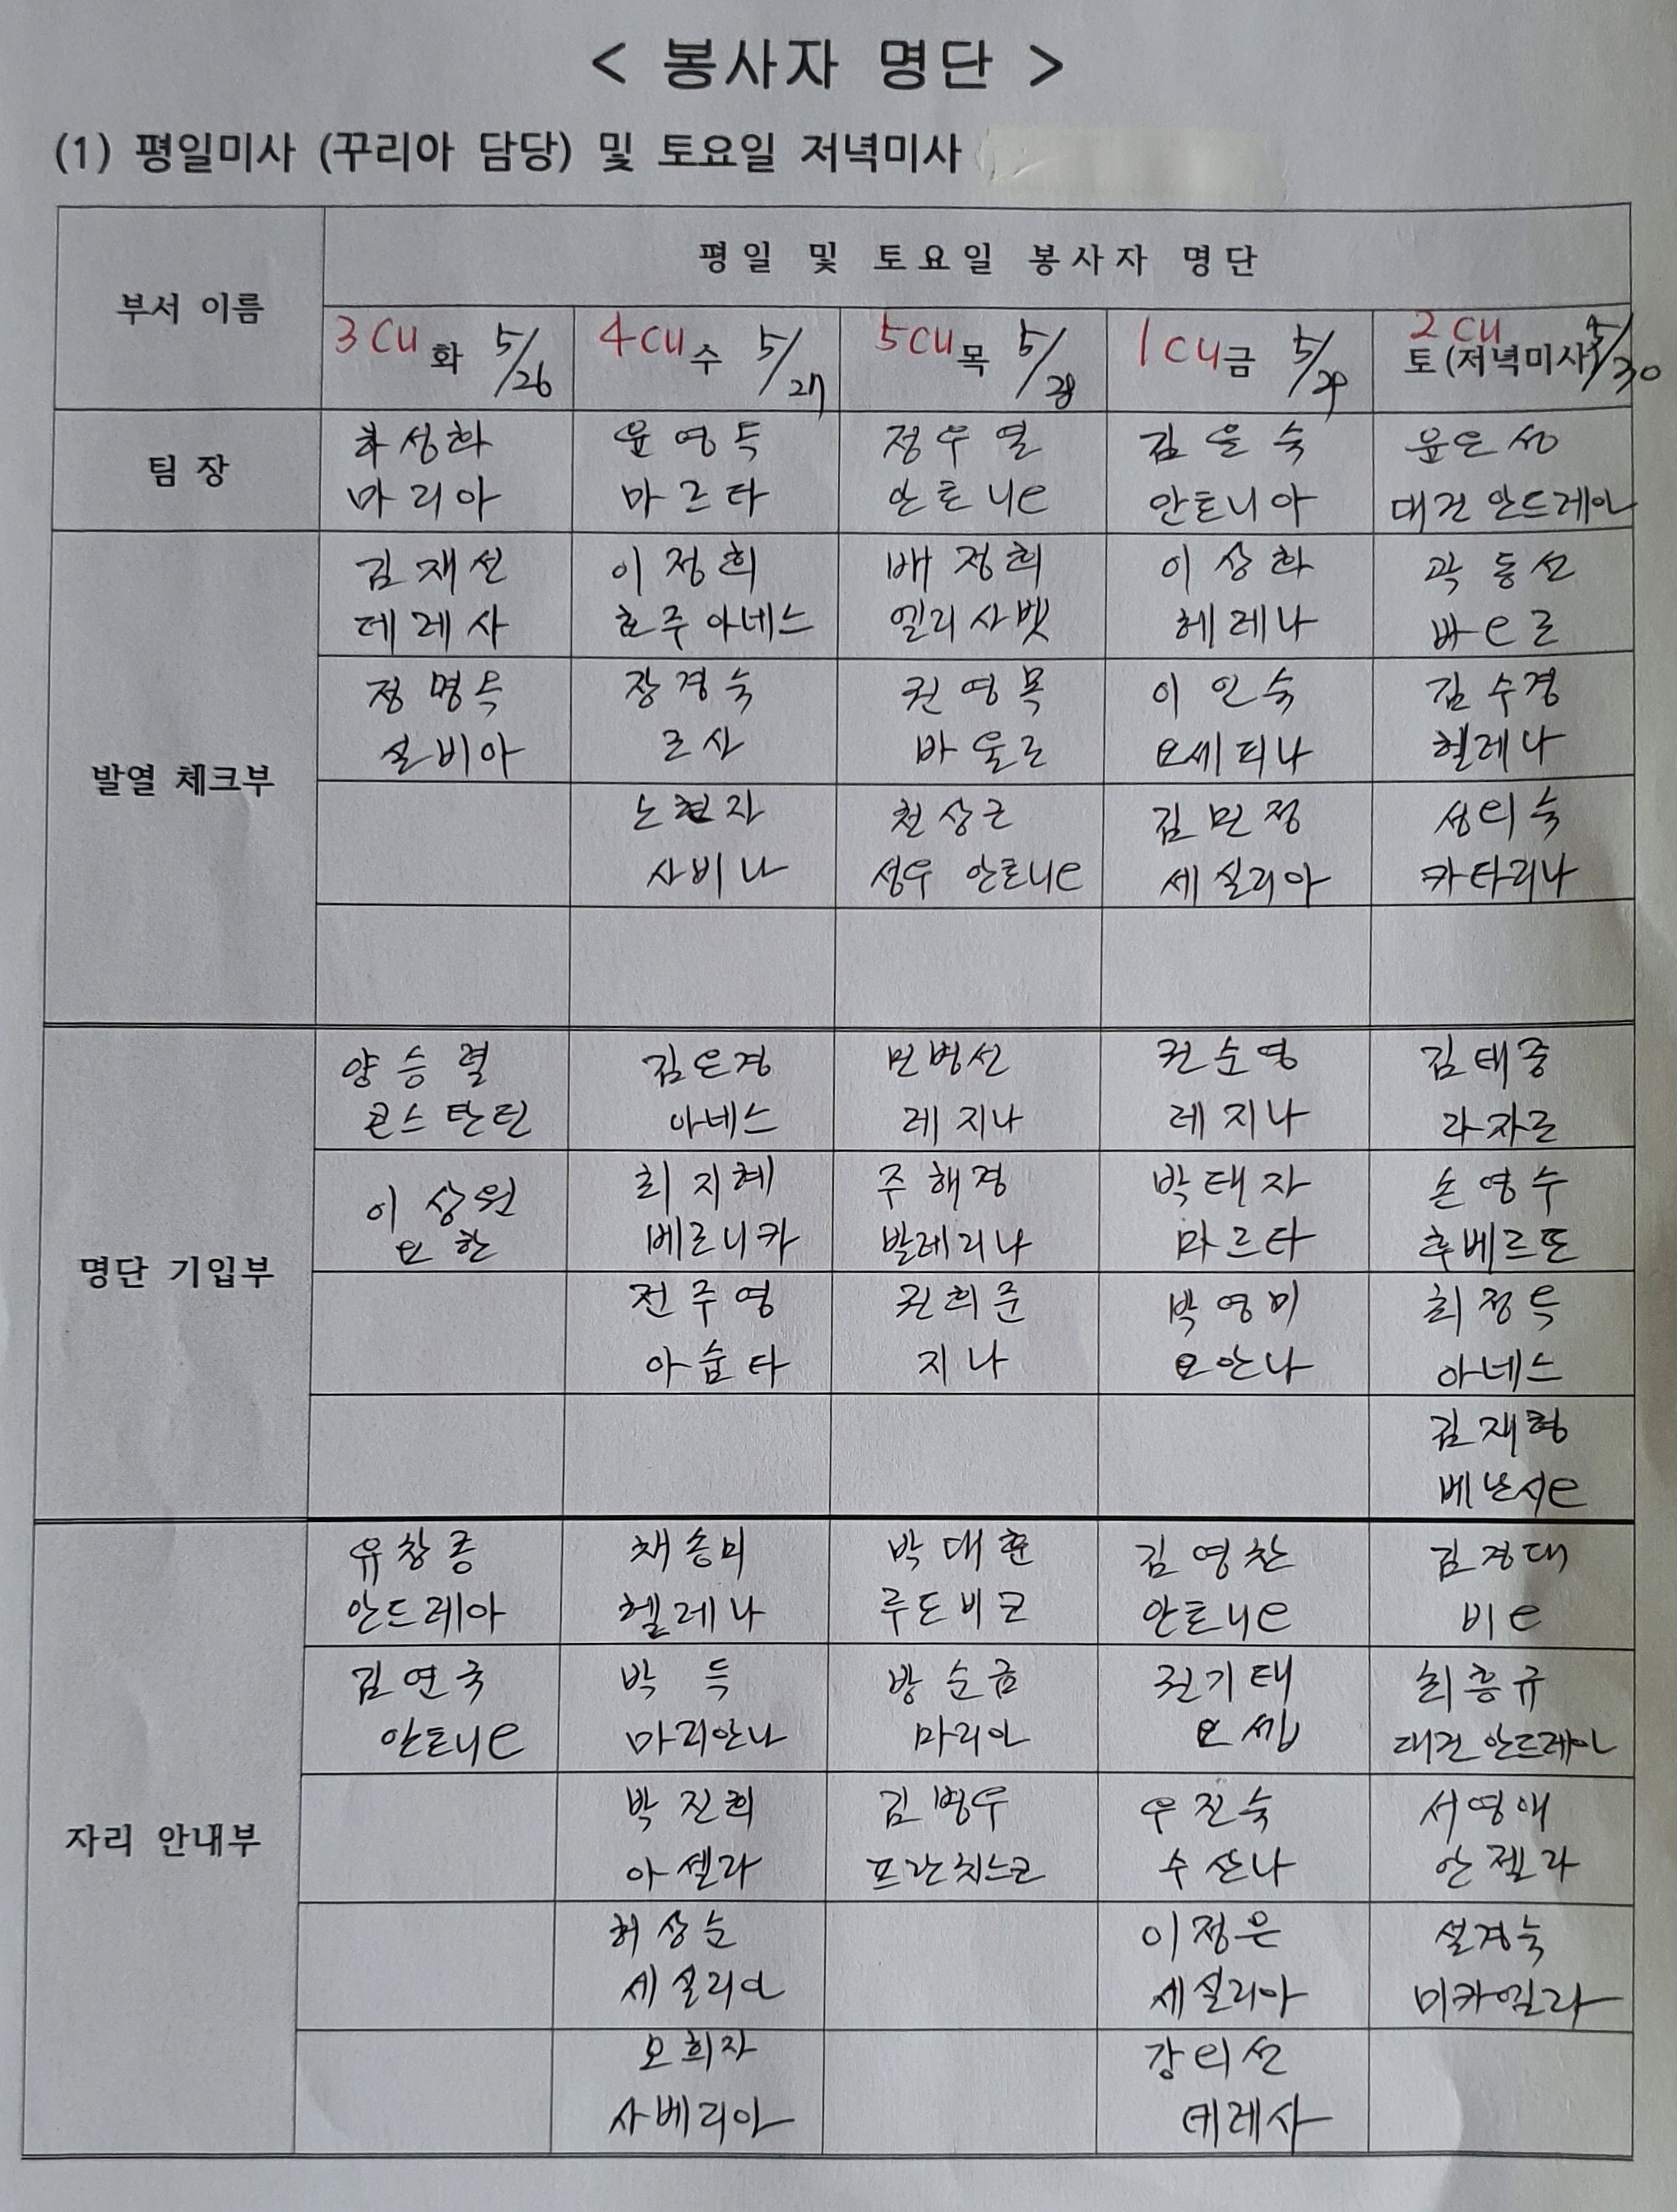 < 봉사자 명단 >
(1) 평일미사 (꾸리아 담당) 및 토요일 저녁미사
부서 이름
평일 및 토요일 봉사자 명단
3 Cu 화 5/26
4 Cu 수 5/27
5 Cu 목 5/28
1 Cu 금 5/29
2 Cu 토(저녁미사) 5/30
팀 장
성화 마리아
윤영득 마르타
정우열 안토니오
김은숙 안토니아
윤은성 대건 안드레아
발열 체크부
김재선 데레사
이정희 호주아네스
배정희 엘리사벳
이상화 헤레나
곽동선 바오로
정명득 실비아
장경숙 로사
권영목 바울로
이인숙 요세피나
김수경 헬레나
노현자 사비나
천상근 성우 안토니오
김민정 세실리아
성의숙 카타리나
명단 기입부
양승렬 콘스탄틴
김은경 아네스
민병선 레지나
권순영 레지나
김태중 라자로
이상원 요한
최지혜 베로니카
주해경 발레리나
박태자 마르타
손영수 후베르또
전주영 아숨타
권희준 지나
박영미 요안나
최정득 아네스
김재형 베난시오
자리 안내부
유창종 안드레아
채송미 헬레나
박대훈 루도비코
김영찬 안토니오
김경대 비오
김연국 안토니오
박득 마리안나
방순금 마리아
권기태 요셉
최흥규 대건 안드레아
박진희 아셀라
김병우 프란치스코
우진숙 수산나
서영애 안젤라
허상순 세실리아
이정은 세실리아
설경숙 미카엘라
오희자 사베리아
강의선 데레사